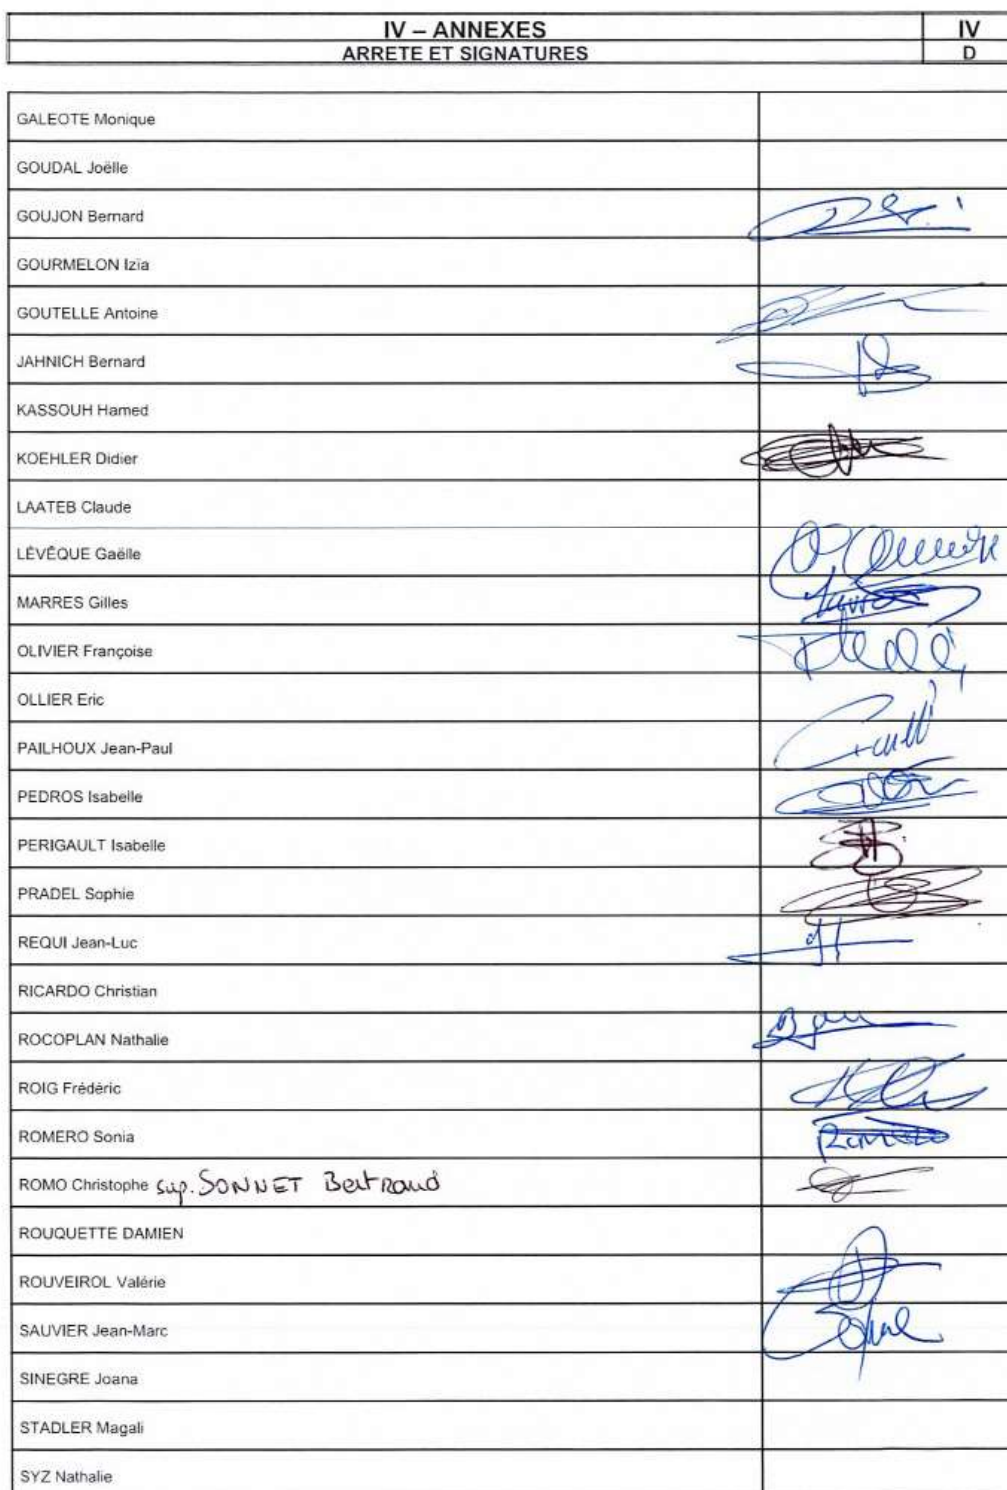 IV – ANNEXES IV
ARRETE ET SIGNATURES D
GALEOTE Monique
GOUDAL Joëlle
GOUJON Bernard
GOURMELON Izïa
GOUTELLE Antoine
JAHNICH Bernard
KASSOUH Hamed
KOEHLER Didier
LAATEB Claude
LÉVÊQUE Gaëlle
MARRES Gilles
OLIVIER Françoise
OLLIER Eric
PAILHOUX Jean-Paul
PEDROS Isabelle
PERIGAULT Isabelle
PRADEL Sophie
REQUI Jean-Luc
RICARDO Christian
ROCOPLAN Nathalie
ROIG Frédéric
ROMERO Sonia ROMERO
ROMO Christophe sup. SONNET Bertrand
ROUQUETTE DAMIEN
ROUVEIROL Valérie
SAUVIER Jean-Marc
SINEGRE Joana
STADLER Magali
SYZ Nathalie